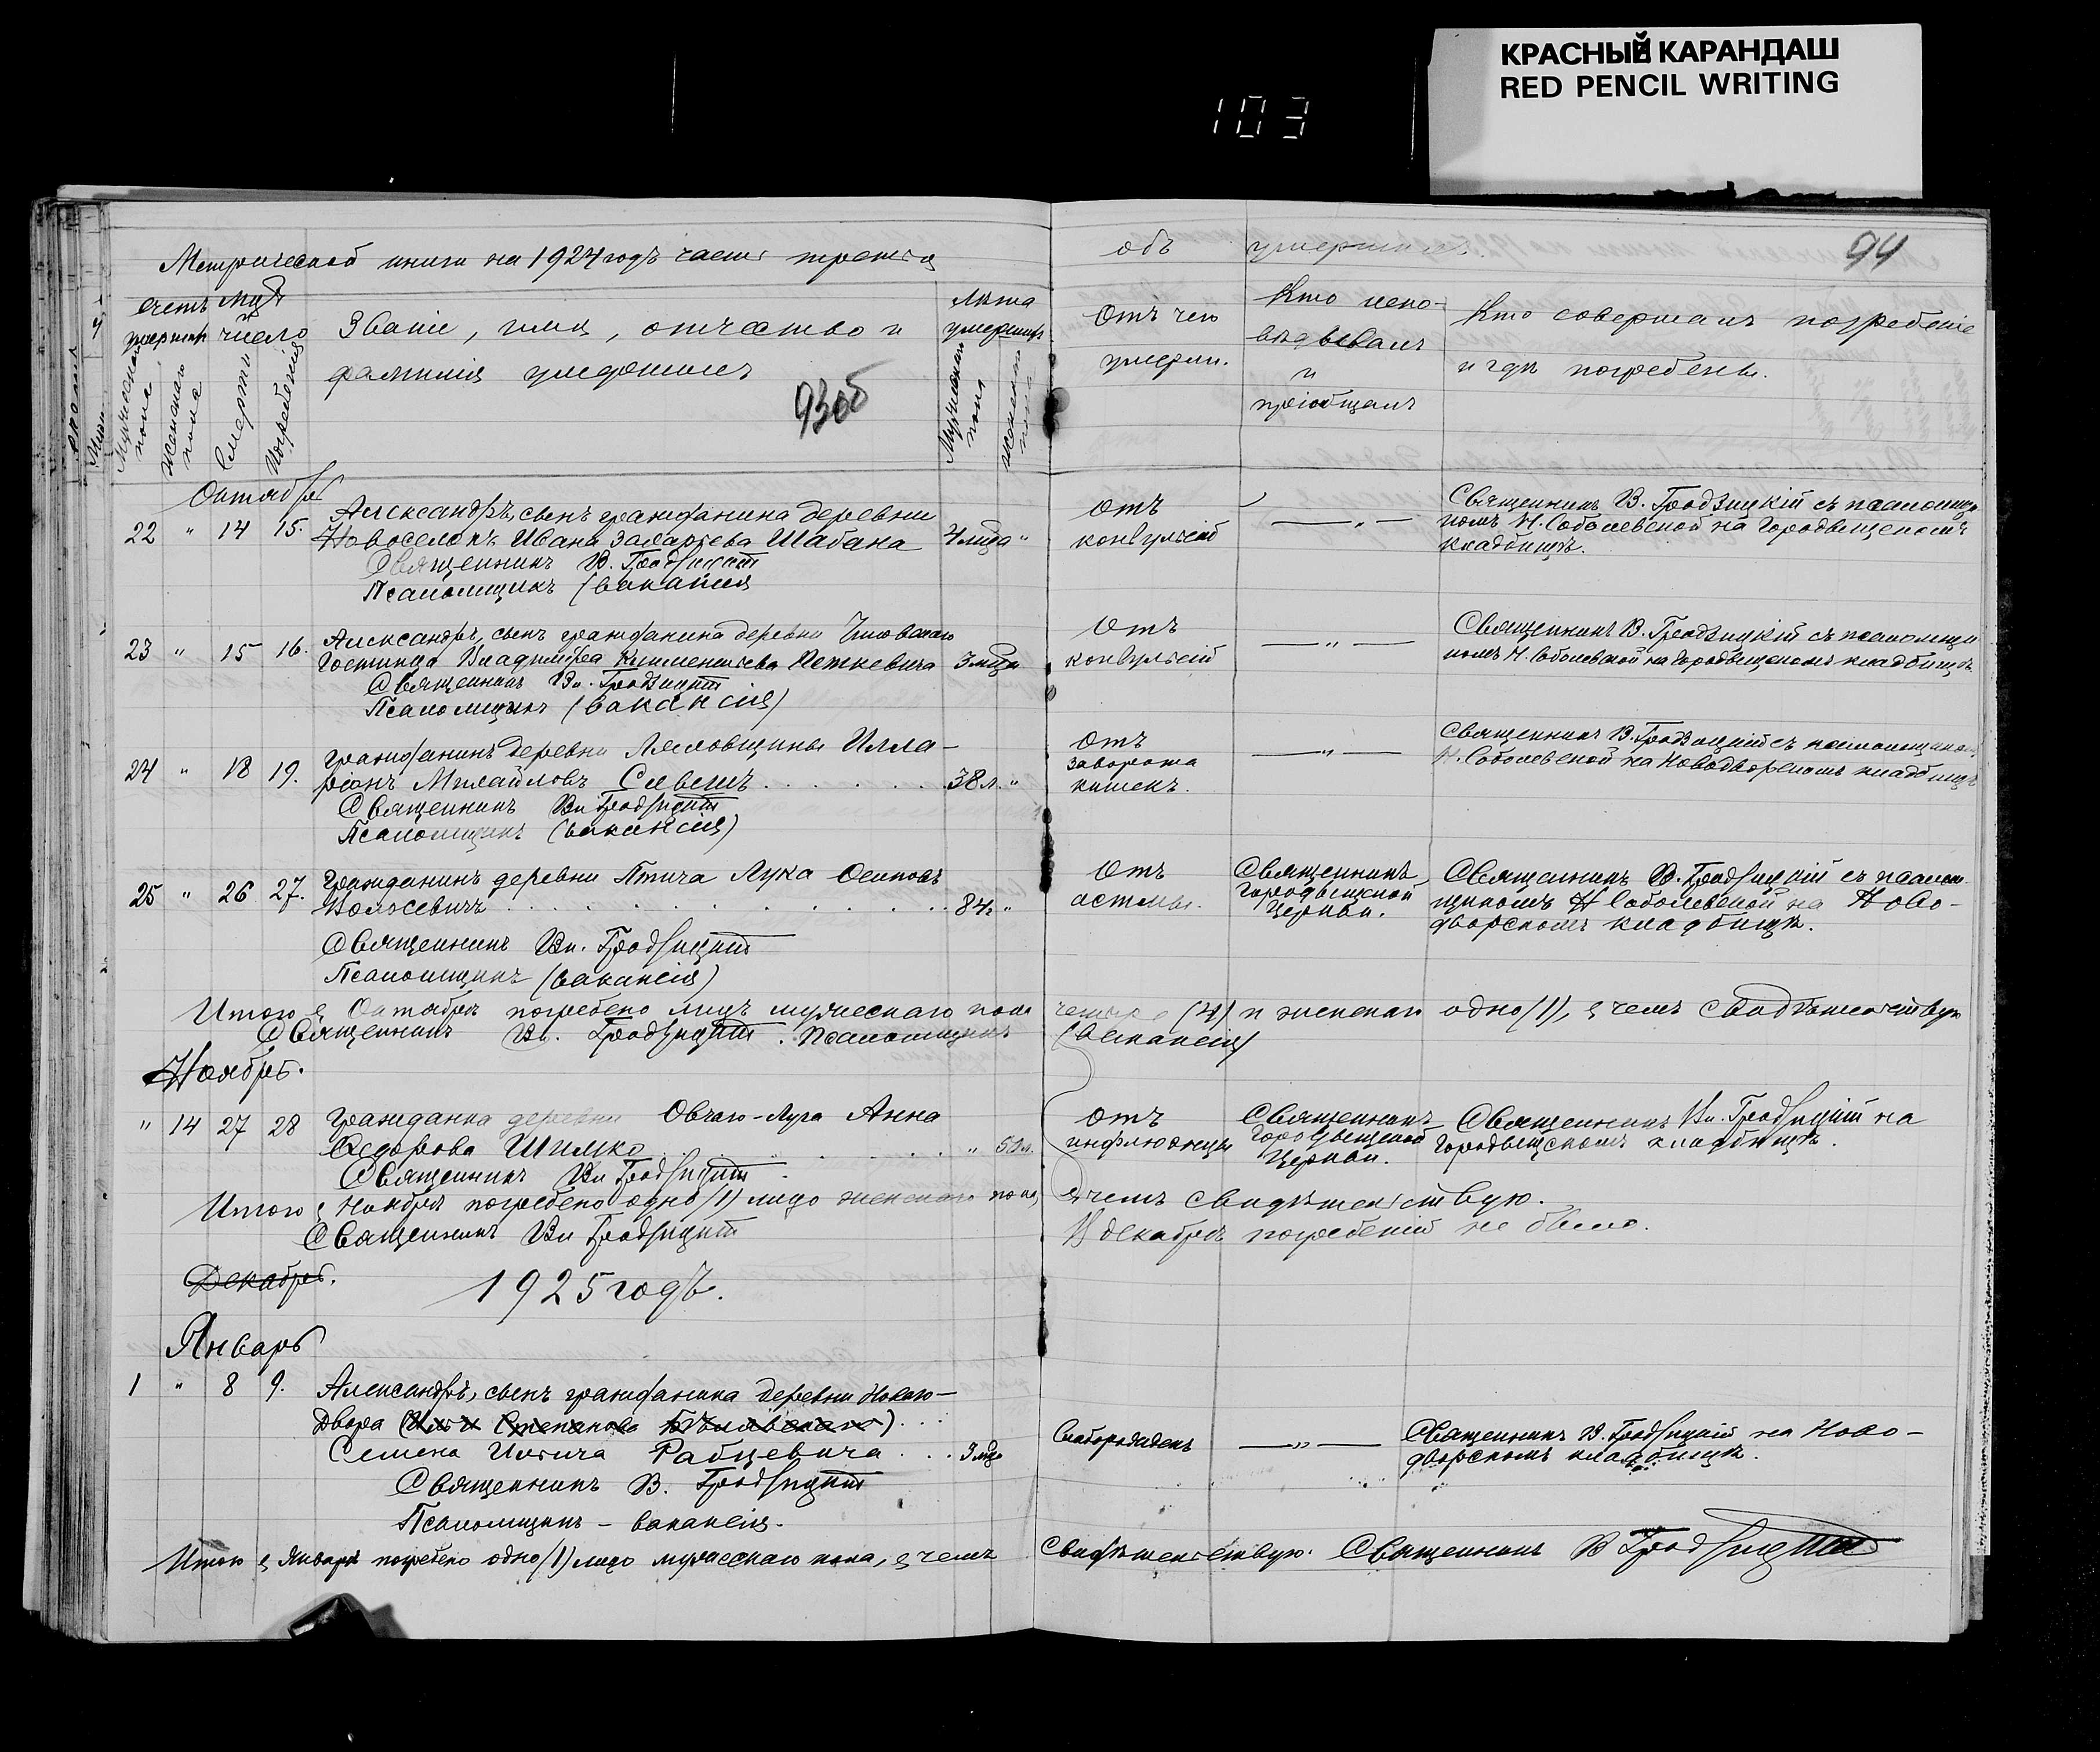 КРАСНЫЙ КАРАНДАШ
RED PENCIL WRITING
103
Метрической книги на 1924 годъ часть третья
объ умершихъ.
94
Счетъ умершихъ
Мужескаго пола
Женскаго пола
Мѣс. и число
Смерти
Погребенія
Званіе, имя, отчество и
фамилія умершихъ
93об
Лѣта умершихъ
Мужескаго пола
Женскаго пола
Отъ чего
умерли.
Кто испо-
вѣдывалъ
и
пріобщалъ
Кто совершалъ погребеніе
и гдѣ погребены.
Октябрь
22 " 14 15. Александръ, сынъ гражданина деревни
Новоселокъ Ивана Захарьева Шабана 4 мѣсца "
Священникъ В. Гродзицкій
Псаломщикъ (вакансія
отъ
конвульсій
— " —
Священникъ В. Гродзицкій съ псаломщи-
комъ Н. Соболевской на Городыщскомъ
кладбищѣ.
23 " 15 16. Александръ, сынъ гражданина деревни
Гостинца Владиміра Климентьева Петкевича 3 мѣсца
Священникъ Вл. Гродзицкій
Псаломщикъ (вакансія)
Отъ
конвульсій
— " —
Священникъ В. Гродзицкій съ псаломщи
комъ Н. Соболевской на Городыщскомъ кладбищѣ
24 " 18 19. Гражданинъ деревни Лясковщины Илла-
ріонъ Михайловъ 38 л. "
Священникъ Вл Гродзицкій
Псаломщикъ (вакансія)
Отъ
заворота
кишекъ.
— " —
Священникъ В. Гродзицкій съ псаломщикомъ
Н. Соболевской на Новодворскомъ кладбищѣ
25 " 26 27. Гражданинъ деревни Птича Лука Осиповъ
84 "
Священникъ Вл. Гродзицкій
Псаломщикъ (вакансія)
Отъ
астмы.
Священникъ
Городыщской
Церкви.
Священникъ В. Гродзицкій съ псалом-
щикомъ Н Соболевской на Ново-
дворскомъ кладбищѣ.
Итого въ Октябрѣ погребено лицъ мужескаго пола четыре (4) и женскаго одно (1), въ чемъ свидѣтельствую
Священникъ Вл. Гродзицкій. Псаломщикъ (вакансія)
Ноябрь.
" 14 27 28 Гражданка деревни Овчаго-Луга Анна
Ѳедорова Шимко " 50 л.
Священникъ Вл Гродзицкій
отъ
инфлюэнцы
Священникъ
Городыщской
Церкви.
Священникъ Вл. Гродзицкій на
Городыщскомъ кладбищѣ.
Итого въ Ноябрѣ погребено одно (1) лицо женскаго пола, въ чемъ свидѣтельствую.
Священникъ Вл Гродзицкій
В декабрѣ погребеній не было.
Декабрь.
1925 годъ.
Январь
1 " 8 9. Александръ, сынъ гражданина деревни Новаго-
Двора (Степанова)
Семена Рабцевича 3 мѣсц
Священникъ В. Гродзицкій
Псаломщикъ – вакансія.
— " —
Священникъ В. Гродзицкій на Ново-
дворскомъ кладбищѣ.
Итого въ Январѣ погребено одно (1) лицо мужескаго пола, въ чемъ свидѣтельствую. Священникъ В Гродзицкій